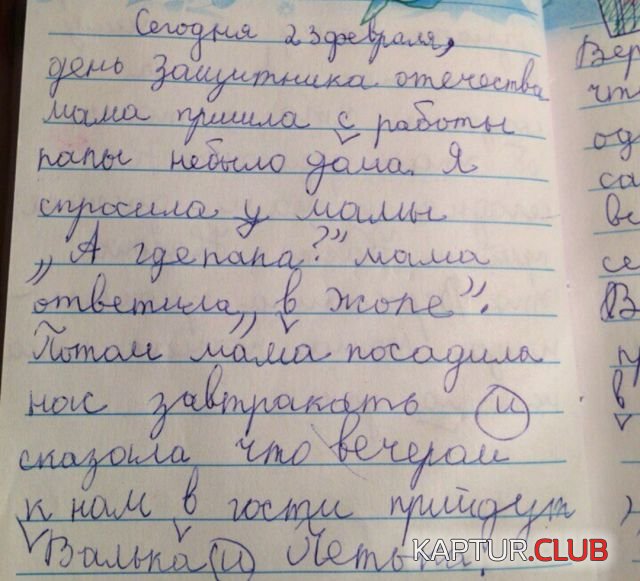 Сегодня 23 февраля,
день Защитника отечества
мама пришла с работы
папы небыло дома. Я
спросила у мамы
„А где папа?” мама
ответила „в жопе”.
Потом мама посадила
нас завтракать и
сказала что вечером
к нам в гости прийдут
Валька и
Вер
что
од
са
вс
се
В
в
KAPTUR.CLUB